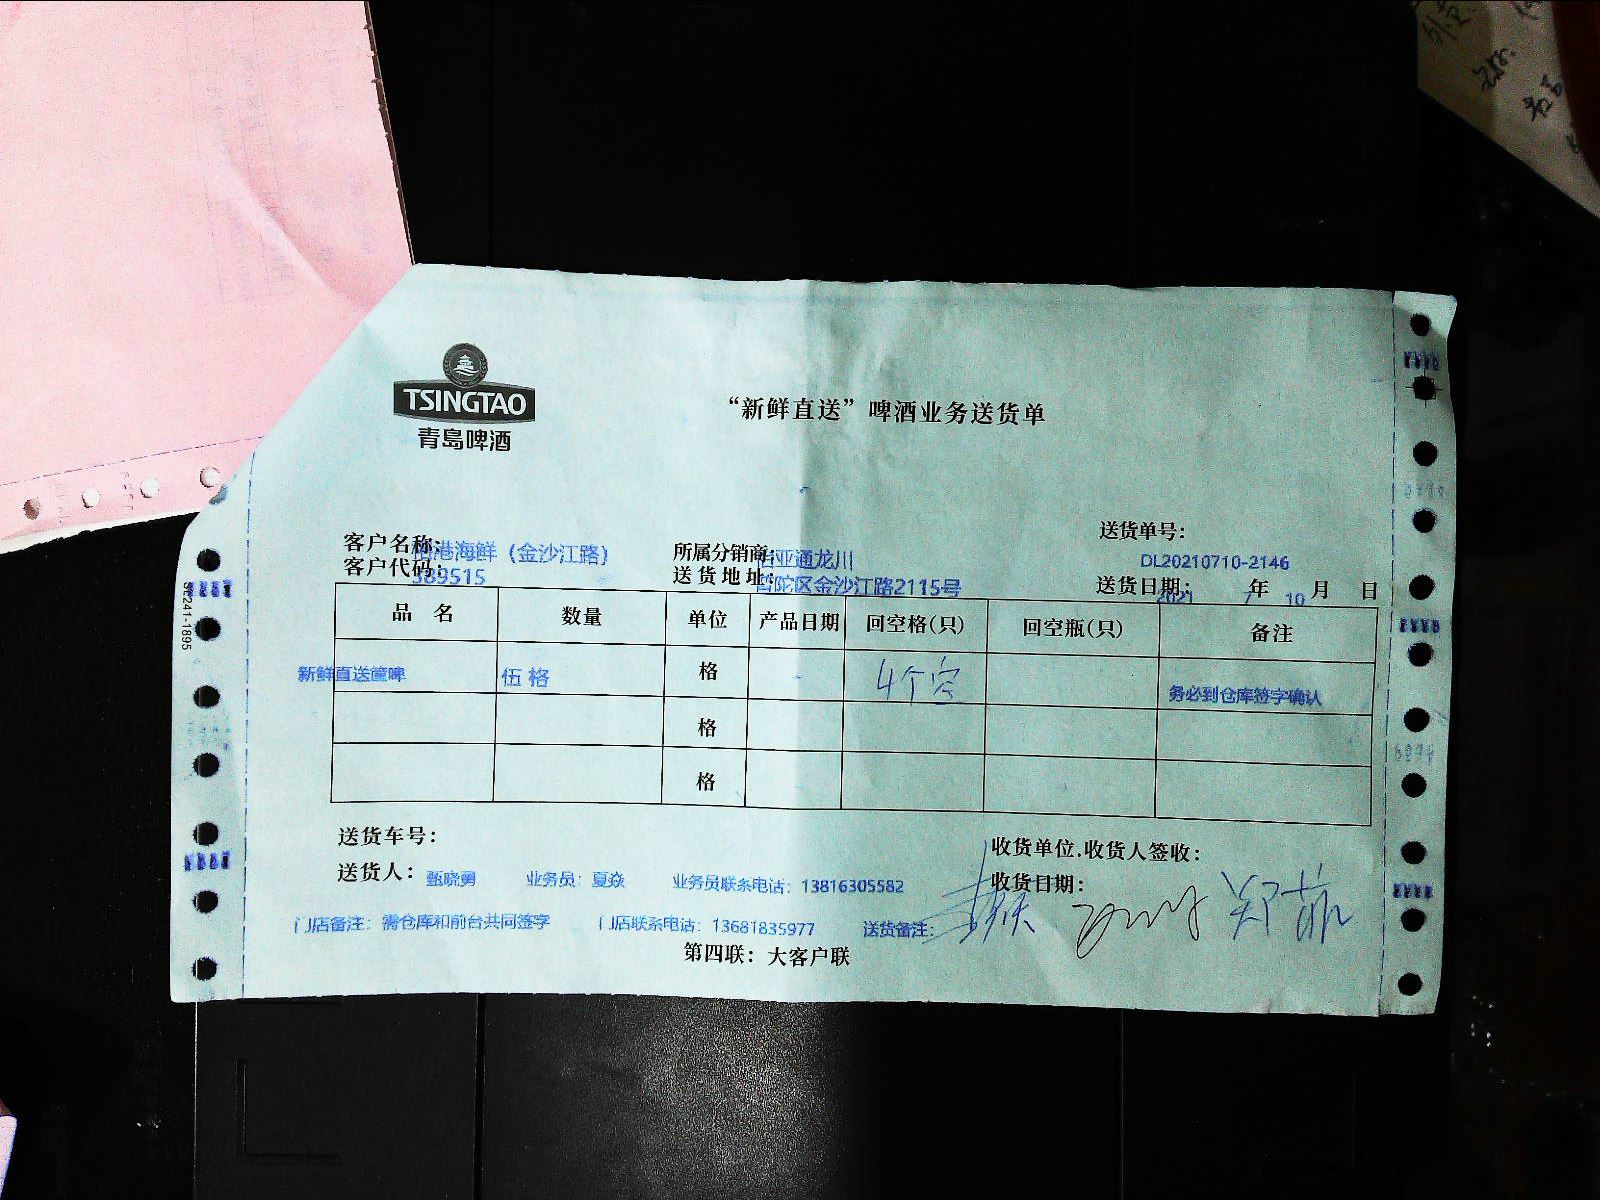 TSINGTAO
青岛啤酒
“新鲜直送”啤酒业务送货单
送货单号:
DL20210710-2146
客户名称: 港海鲜（金沙江路） 所属分销商: 亚通龙川
客户代码: 389515 送货地址: 普陀区金沙江路2115号 送货日期: 2021 年 7 月 10 日
品 名 数量 单位 产品日期 回空格(只) 回空瓶(只) 备注
新鲜直送筐啤 伍 格 格 4个空 务必到仓库签字确认
格
格
送货车号: 收货单位.收货人签收:
送货人: 甄晓勇 业务员: 夏焱 业务员联系电话: 13816305582 收货日期:
门店备注: 需仓库和前台共同签字 门店联系电话: 13681835977 送货备注:
第四联: 大客户联
SL241-1895